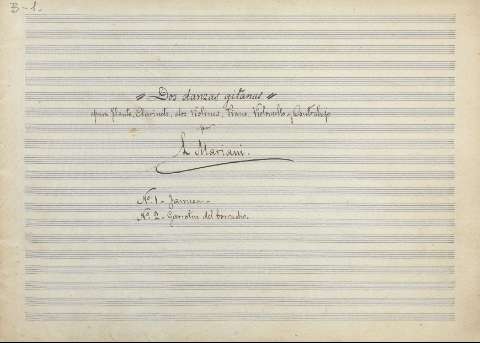 B-1.
" Dos danzas gitanas "
para Flauta, Clarinete, dos violines, Piano, Violoncello y Contrabajo
por
L. Mariani.
Nº. 1 - Farruca -
Nº. 2 - Garrotin del borracho.